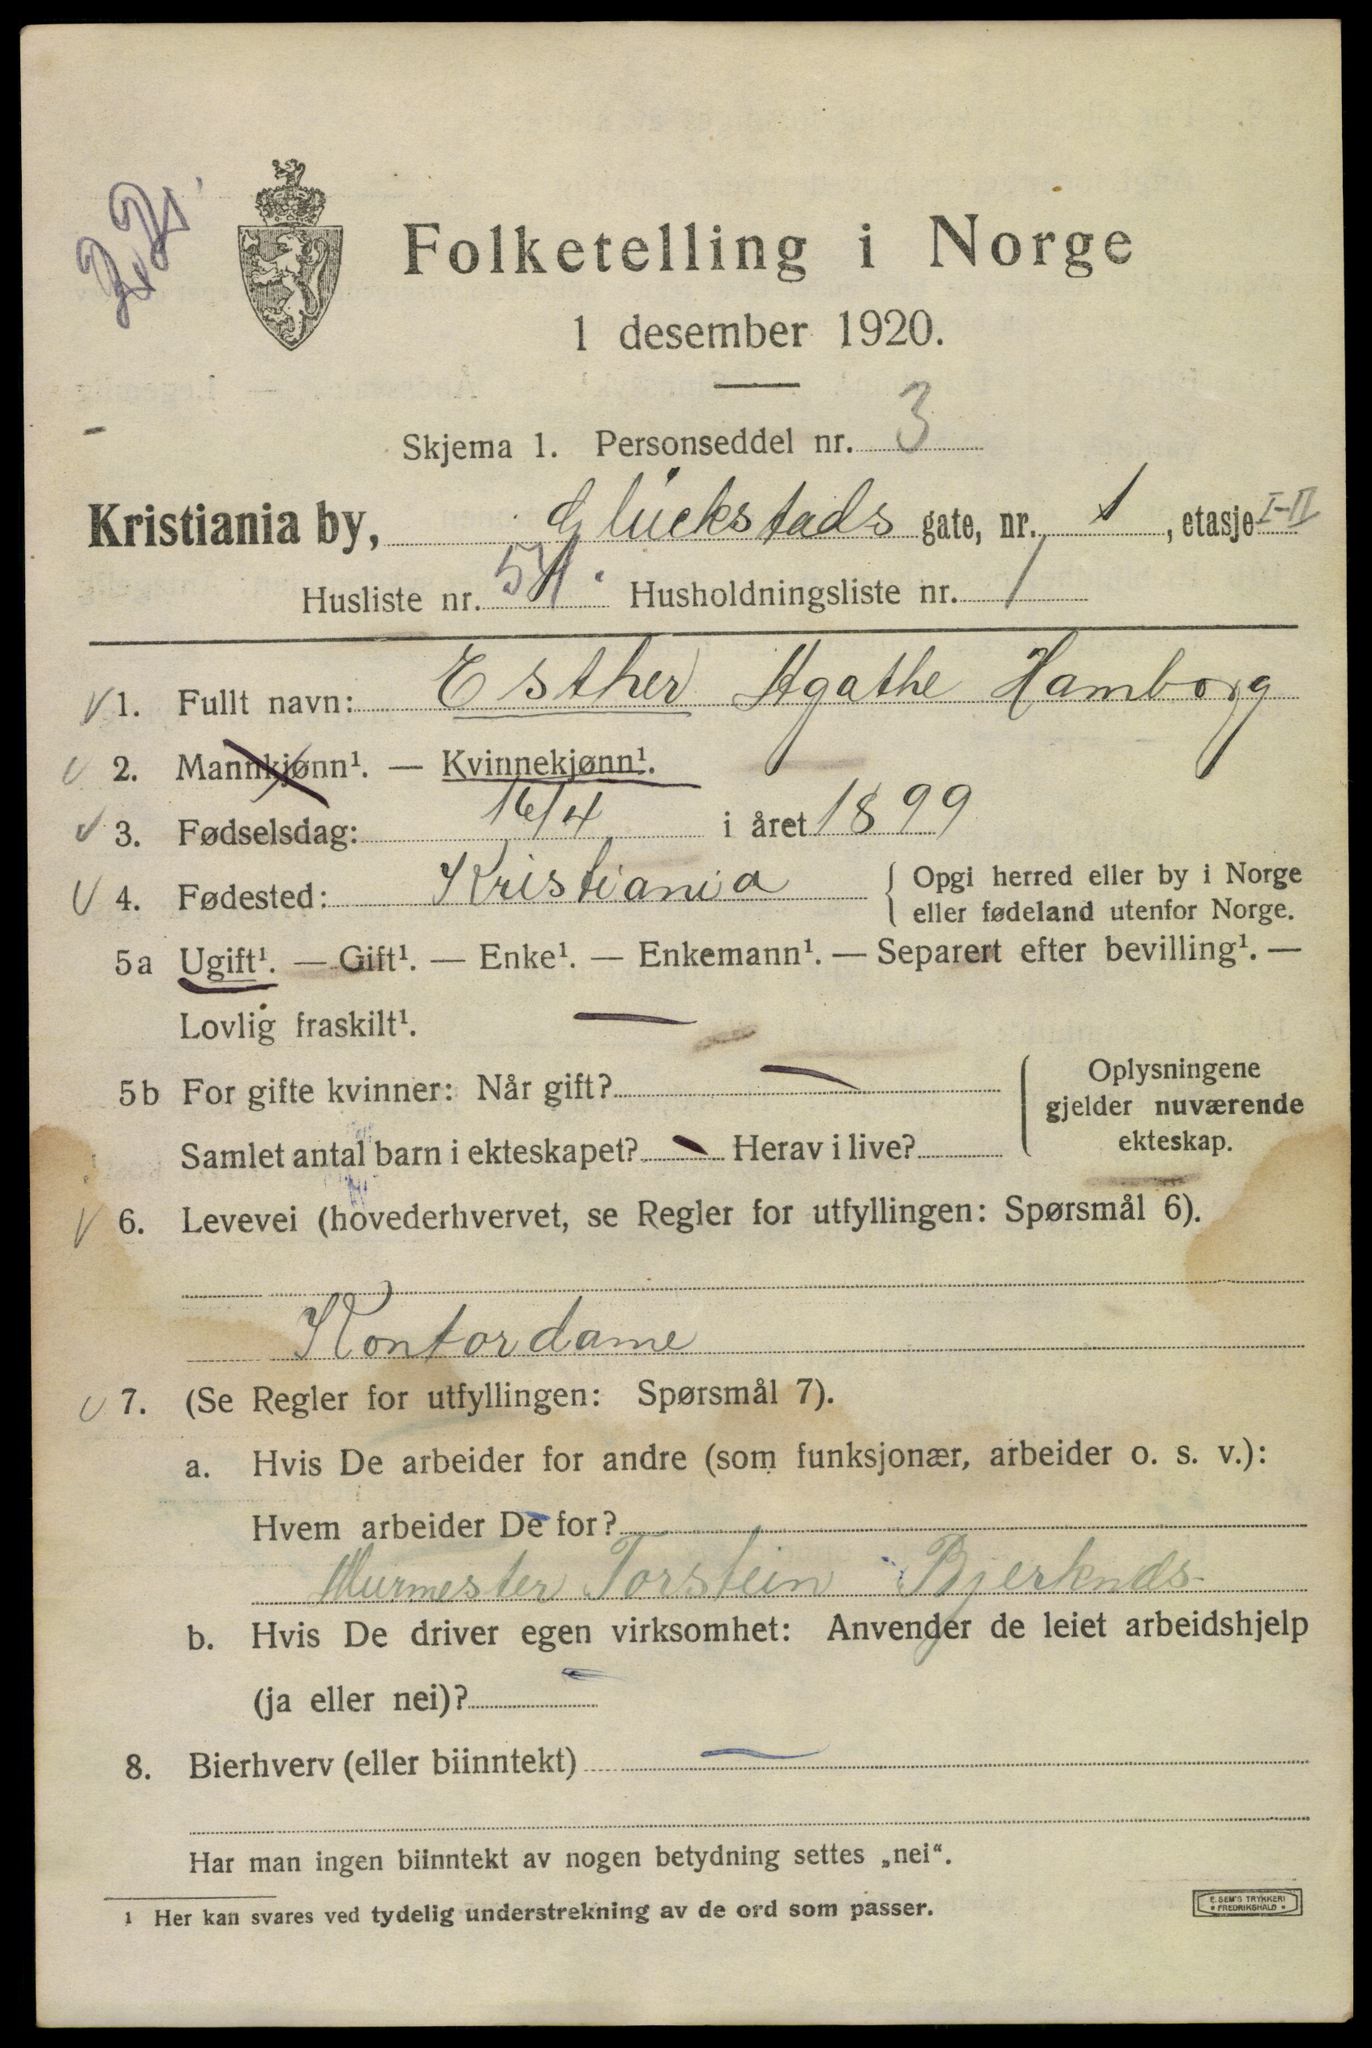 Folketelling i Norge
1 desember 1920.
Skjema 1. Personseddel nr. 3
Kristiania by, Glückstads gate, nr. 1, etasje I-II
Husliste nr. Husholdningsliste nr. 1
1. Fullt navn: Esther Agathe Hamborg
2. Mannkjønn¹. — Kvinnekjønn¹.
3. Fødselsdag: 16/4 i året 1899
4. Fødested: Kristiania { Opgi herred eller by i Norge
eller fødeland utenfor Norge.
5a Ugift¹. — Gift¹. — Enke¹. — Enkemann¹. — Separert efter bevilling¹. —
Lovlig fraskilt¹. —
5b For gifte kvinner: Når gift? —
Samlet antal barn i ekteskapet? - Herav i live?
Oplysningene
gjelder nuværende
ekteskap.
6. Levevei (hovederhvervet, se Regler for utfyllingen: Spørsmål 6).
Kontordame
7. (Se Regler for utfyllingen: Spørsmål 7).
a. Hvis De arbeider for andre (som funksjonær, arbeider o. s. v.):
Hvem arbeider De for?
Murmester Torstein Bjerknds
b. Hvis De driver egen virksomhet: Anvender de leiet arbeidshjelp
(ja eller nei)? —
8. Bierhverv (eller biinntekt) —
Har man ingen biinntekt av nogen betydning settes „nei“.
1 Her kan svares ved tydelig understrekning av de ord som passer.
E. SEM'S TRYKKERI
* FREDRIKSHALD *